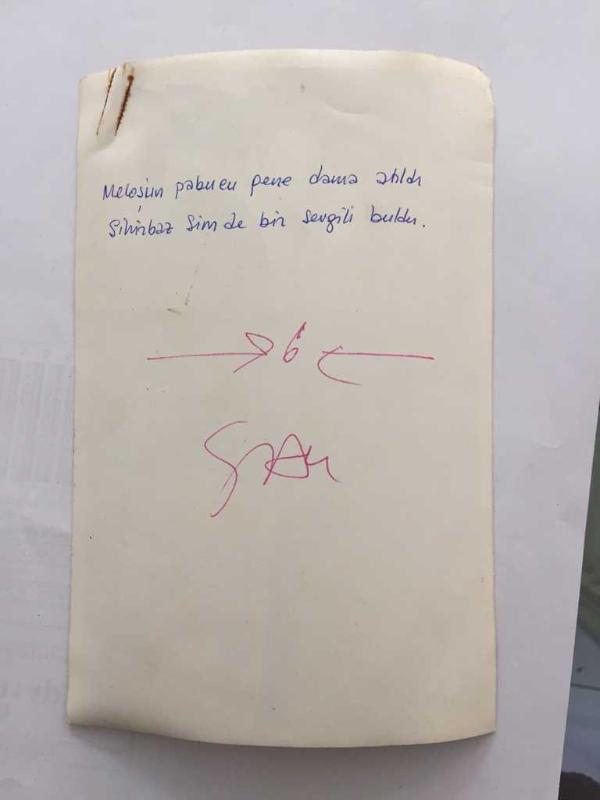 Meloşun pabucu pene dama atıldı
Sihirbaz Sim de bir sevgili buldu.
6